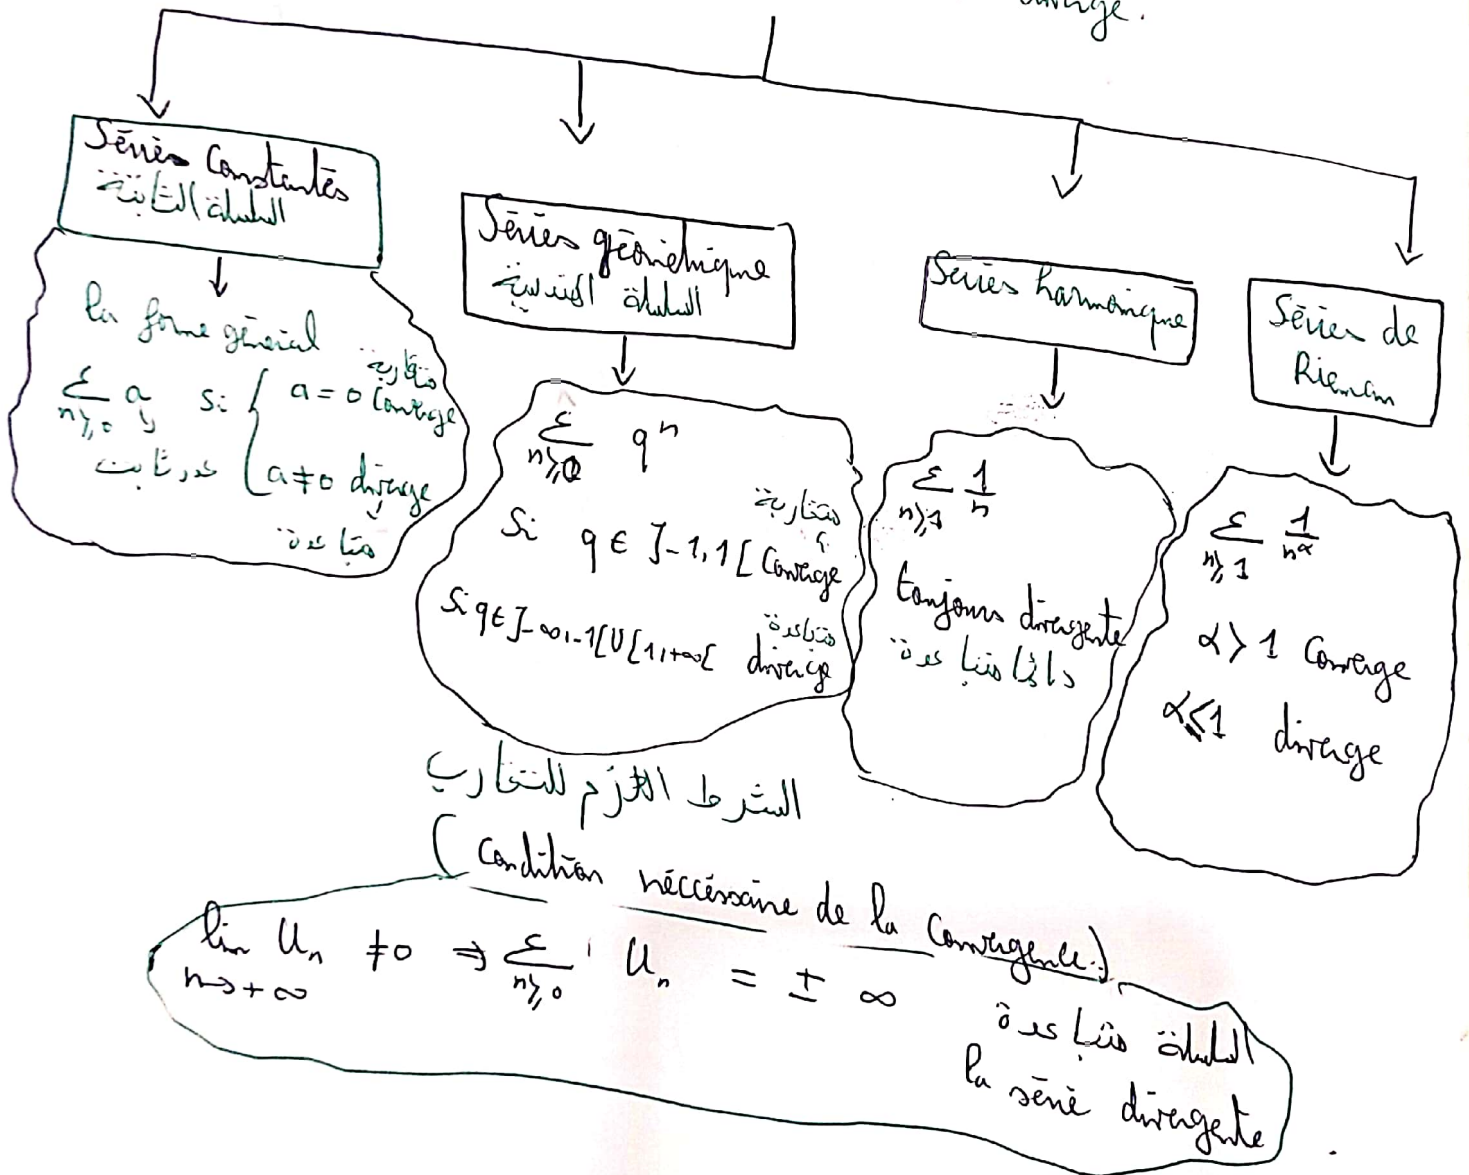 diverge.
Séries Constantés
السلسلة الثابتة
la forme général
متقاربة
∑ n≥0 a si { a = 0 Converge
عدد ثابت
a ≠ 0 diverge
متباعدة
Séries géométrique
السلسلة الهندسية
∑ n≥0 q^n
متقاربة
Si q ∈ ]-1,1[ Converge
متباعدة
Si q ∈ ]-∞,-1[ U [1,+∞[ diverge
Séries harmonique
∑ n≥1 1/n
toujours divergente
دائما متباعدة
Séries de
Rieman
∑ n≥1 1/n^α
α > 1 Converge
α ≤ 1 diverge
الشرط اللازم للتقارب
(Condition néccéssaire de la Convergence)
lim n→+∞ Un ≠ 0 ⇒ ∑ n≥0 Un = ± ∞
السلسلة متباعدة
la série divergente